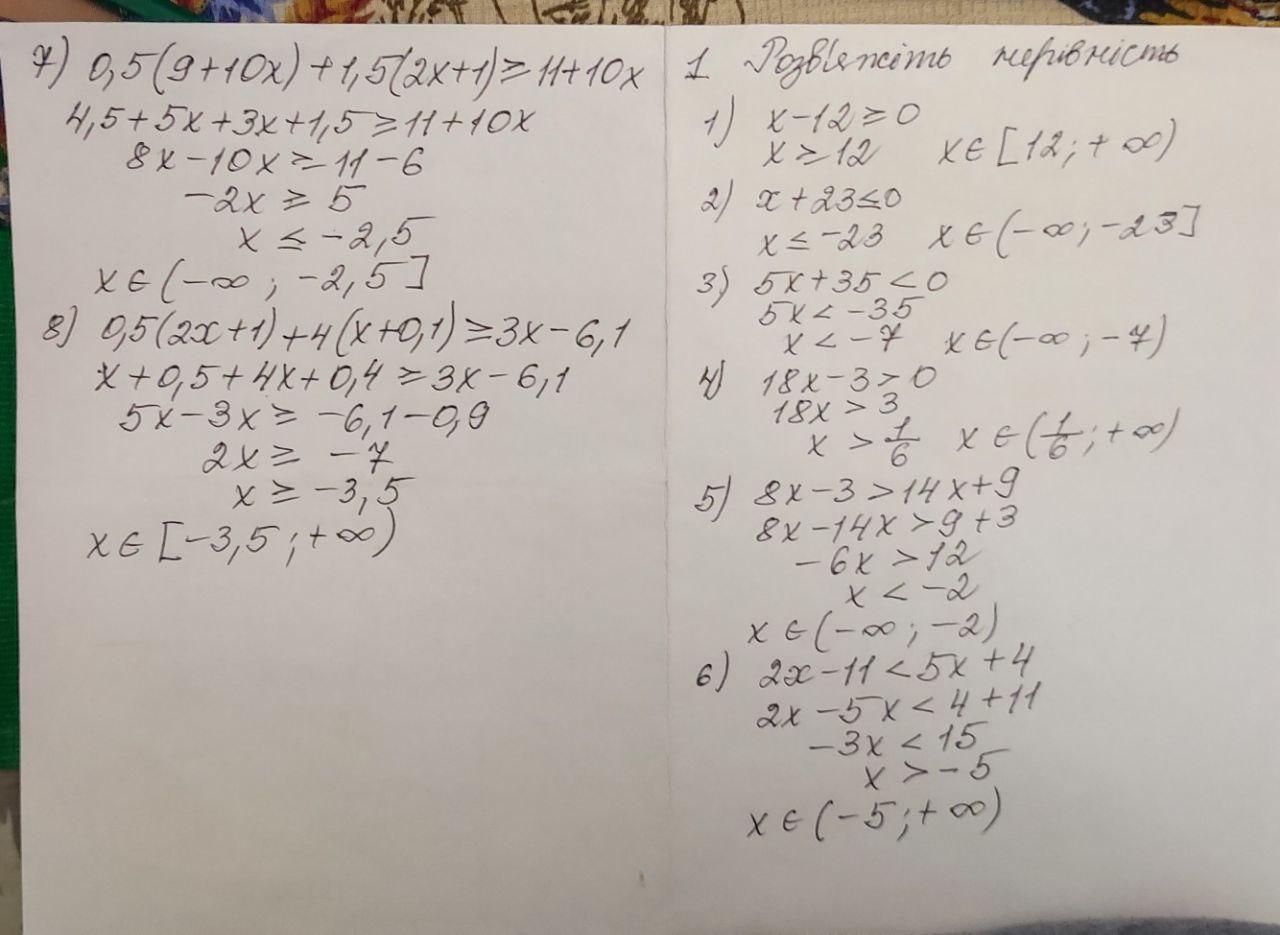 7) 0,5(9+10x)+1,5(2x+1)≥11+10x
4,5+5x+3x+1,5≥11+10x
8x-10x≥11-6
-2x≥5
x≤-2,5
x∈(-∞; -2,5]
8) 0,5(2x+1)+4(x+0,1)≥3x-6,1
x+0,5+4x+0,4≥3x-6,1
5x-3x≥-6,1-0,9
2x≥-7
x≥-3,5
x∈[-3,5;+∞)
1 Розв'яжіть нерівність
1) x-12≥0
x≥12 x∈[12;+∞)
2) x+23≤0
x≤-23 x∈(-∞;-23]
3) 5x+35<0
5x<-35
x<-7 x∈(-∞;-7)
4) 18x-3>0
18x>3
x>1/6 x∈(1/6;+∞)
5) 8x-3>14x+9
8x-14x>9+3
-6x>12
x<-2
x∈(-∞;-2)
6) 2x-11<5x+4
2x-5x<4+11
-3x<15
x>-5
x∈(-5;+∞)